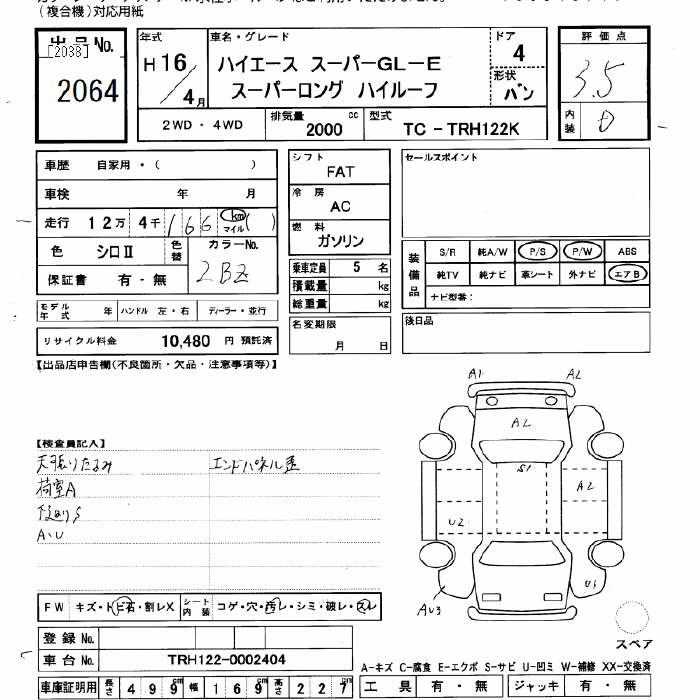 (複合機)対応用紙
出品No.
[2038]
2064
年式
H16/4月
車名・グレード
ハイエース スーパーGL-E
スーパーロング ハイルーフ
ドア
4
形状
バン
評価点
3.5
内装 D
2WD・4WD
排気量 2000 cc
型式 TC-TRH122K
車歴 自家用・( )
車検 年 月
走行 12万 4千 166 km マイル ( )
色 シロⅡ 色替 カラーNo. 2BZ
保証書 有・無
モデル年式 年 ハンドル 左・右 ディーラー・並行
リサイクル料金 10,480 円 預託済
シフト
FAT
冷房
AC
燃料
ガソリン
乗車定員 5 名
積載量 kg
総重量 kg
名変期限
月 日
セールスポイント
装備品
S/R 純A/W P/S P/W ABS
純TV 純ナビ 革シート 外ナビ エアB
ナビ型番:
後日品
【出品店申告欄(不良箇所・欠品・注意事項等)】
【検査員記入】
天張りたるみ エンドパネル歪
荷室A
下廻りS
A・U
A1 A2
A2
S1
A2
U2
U1
AU3
スペア
FW キズ・トビ石・割レX シート内装 コゲ・穴・汚レ・シミ・破レ・スレ
登録No.
車台No. TRH122-0002404
車庫証明用 長さ 499cm 幅 169cm 高さ 227cm
A-キズ C-腐食 E-エクボ S-サビ U-凹ミ W-補修 XX-交換済
工具 有・無 ジャッキ 有・無